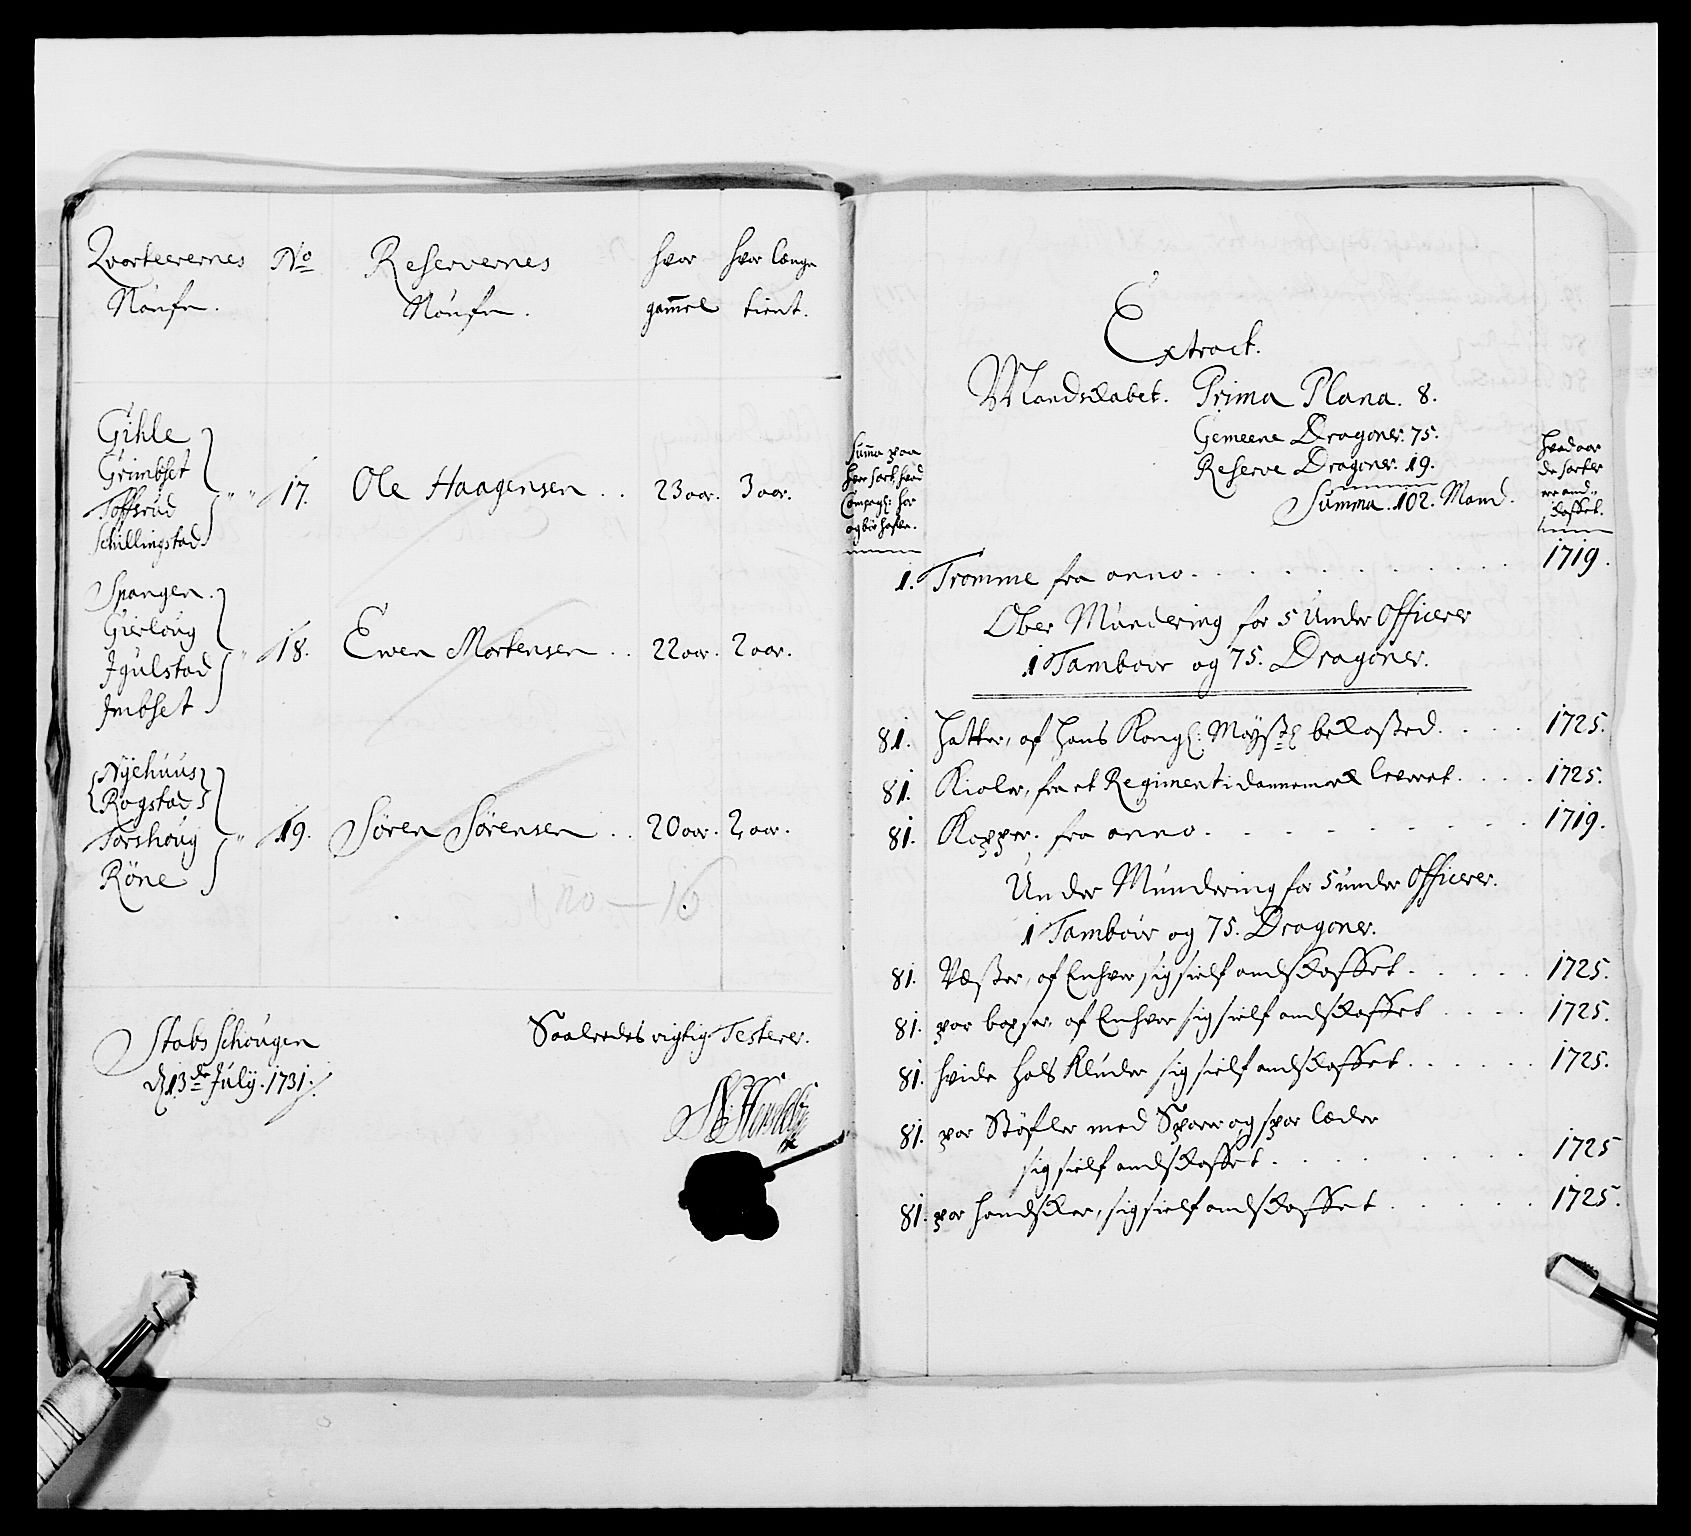 Qvarteerernes No Reservernes hvor hvor længe
Naufn. Naufn. gammel tient.
Gihle
Grimbset
Toffsrud " " 17. Ole Haagensen . . 23 aar. 3 aar.
Schillingstad
Spangen.
Gierloug
Jgulstad " 18. Ewen Mortensen . . 22 aar. 2 aar.
Jmbset
Nÿehuus
Rogstad
Torshoug " 19. Sören Sörensen . . 20 aar. 2 aar.
Röne
Stabs Schougen
d 13de Julÿ. 1731.
Saaledes rigtig Testerer.
Extract.
Mandskabet. Prima Plana. 8.
Gemeene Dragoner. 75.
Reserve Dragoner. 19.
Summa. 102. Mand.
Summa paa
hver sort, hvad
Compagl: har
og bör hafve.
hvad aar
de sorter
ere and-
skaffet.
1. Tromme fra anno. . . . . . . . . 1719.
Ober Mundering for 5 Under Officerer
1 Tambour og 75. Dragoner.
81. Hatter, af Hans Kongl: Mayst: bekosted. . . . 1725.
81. Kioler, fra et Regiment i dannemark leveret. . . . 1725.
81. Kapper. fra anno. . . . . . . . . 1719.
Under Mundering for 5 under Officerer.
1 Tambour og 75. Dragoner.
81. Væster, af Enhver sig sielf andskaffet. . . . . 1725.
81. par boxser, af Enhver sig sielf andskaffet . . . . 1725.
81. hvide hals Kluder sig sielf andskaffet. . . . . . 1725.
81. par Stöfler med Sporer og spor læder
sig sielf andskaffet. . . . . . . 1725
81. par handsker, sig sielf andskaffet . . . . . 1725.